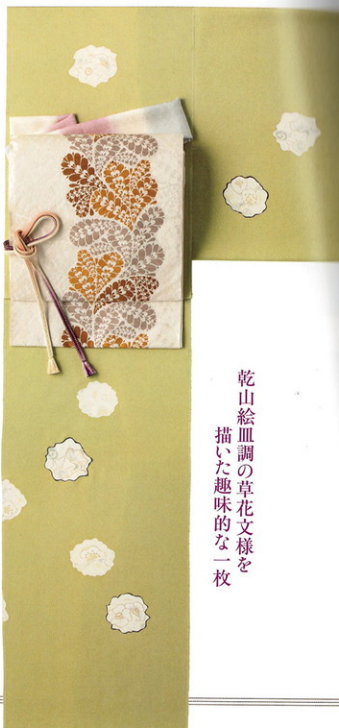 乾山絵皿調の草花文様を
描いた趣味的な一枚